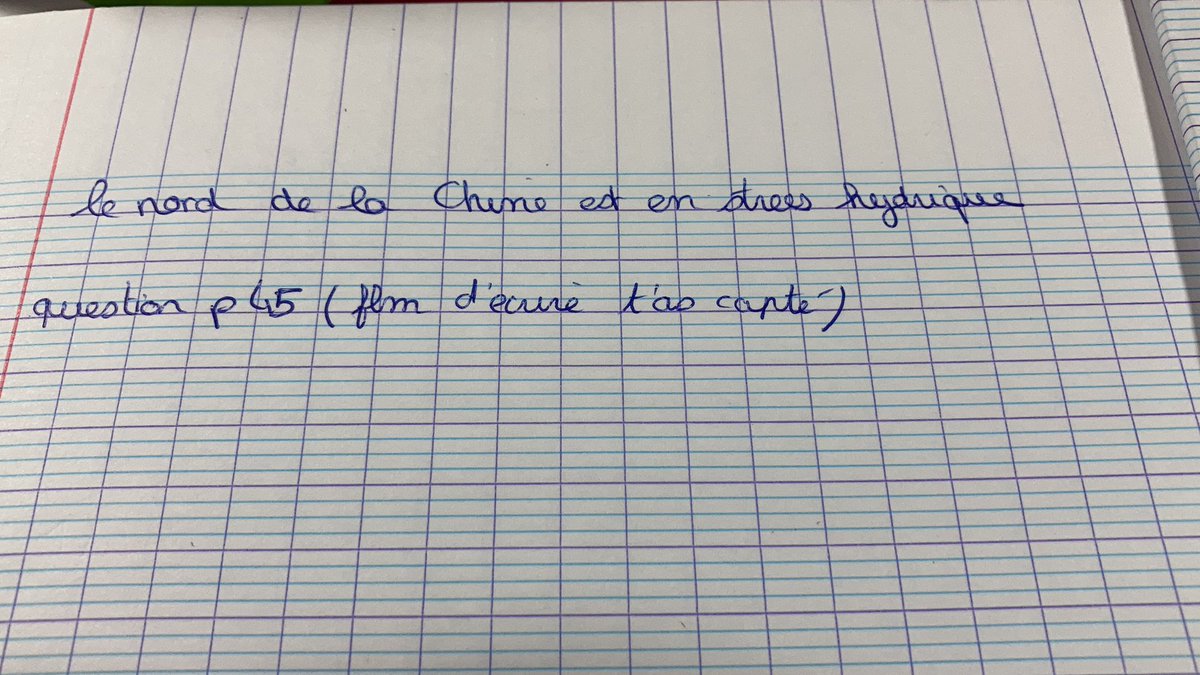 le nord de la Chine est en stress hydrique
question p 45 (flm d'écrire t'as capté)